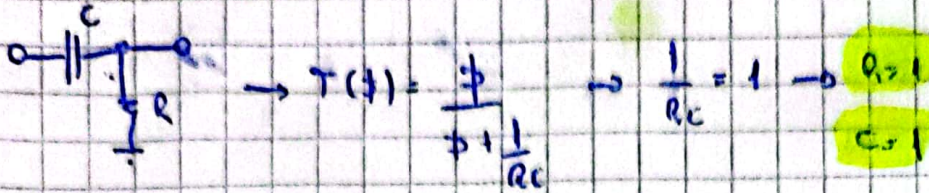 C
R
→ T($) = $ / ($ + 1/RC) → 1/RC = 1 → R = 1
C = 1